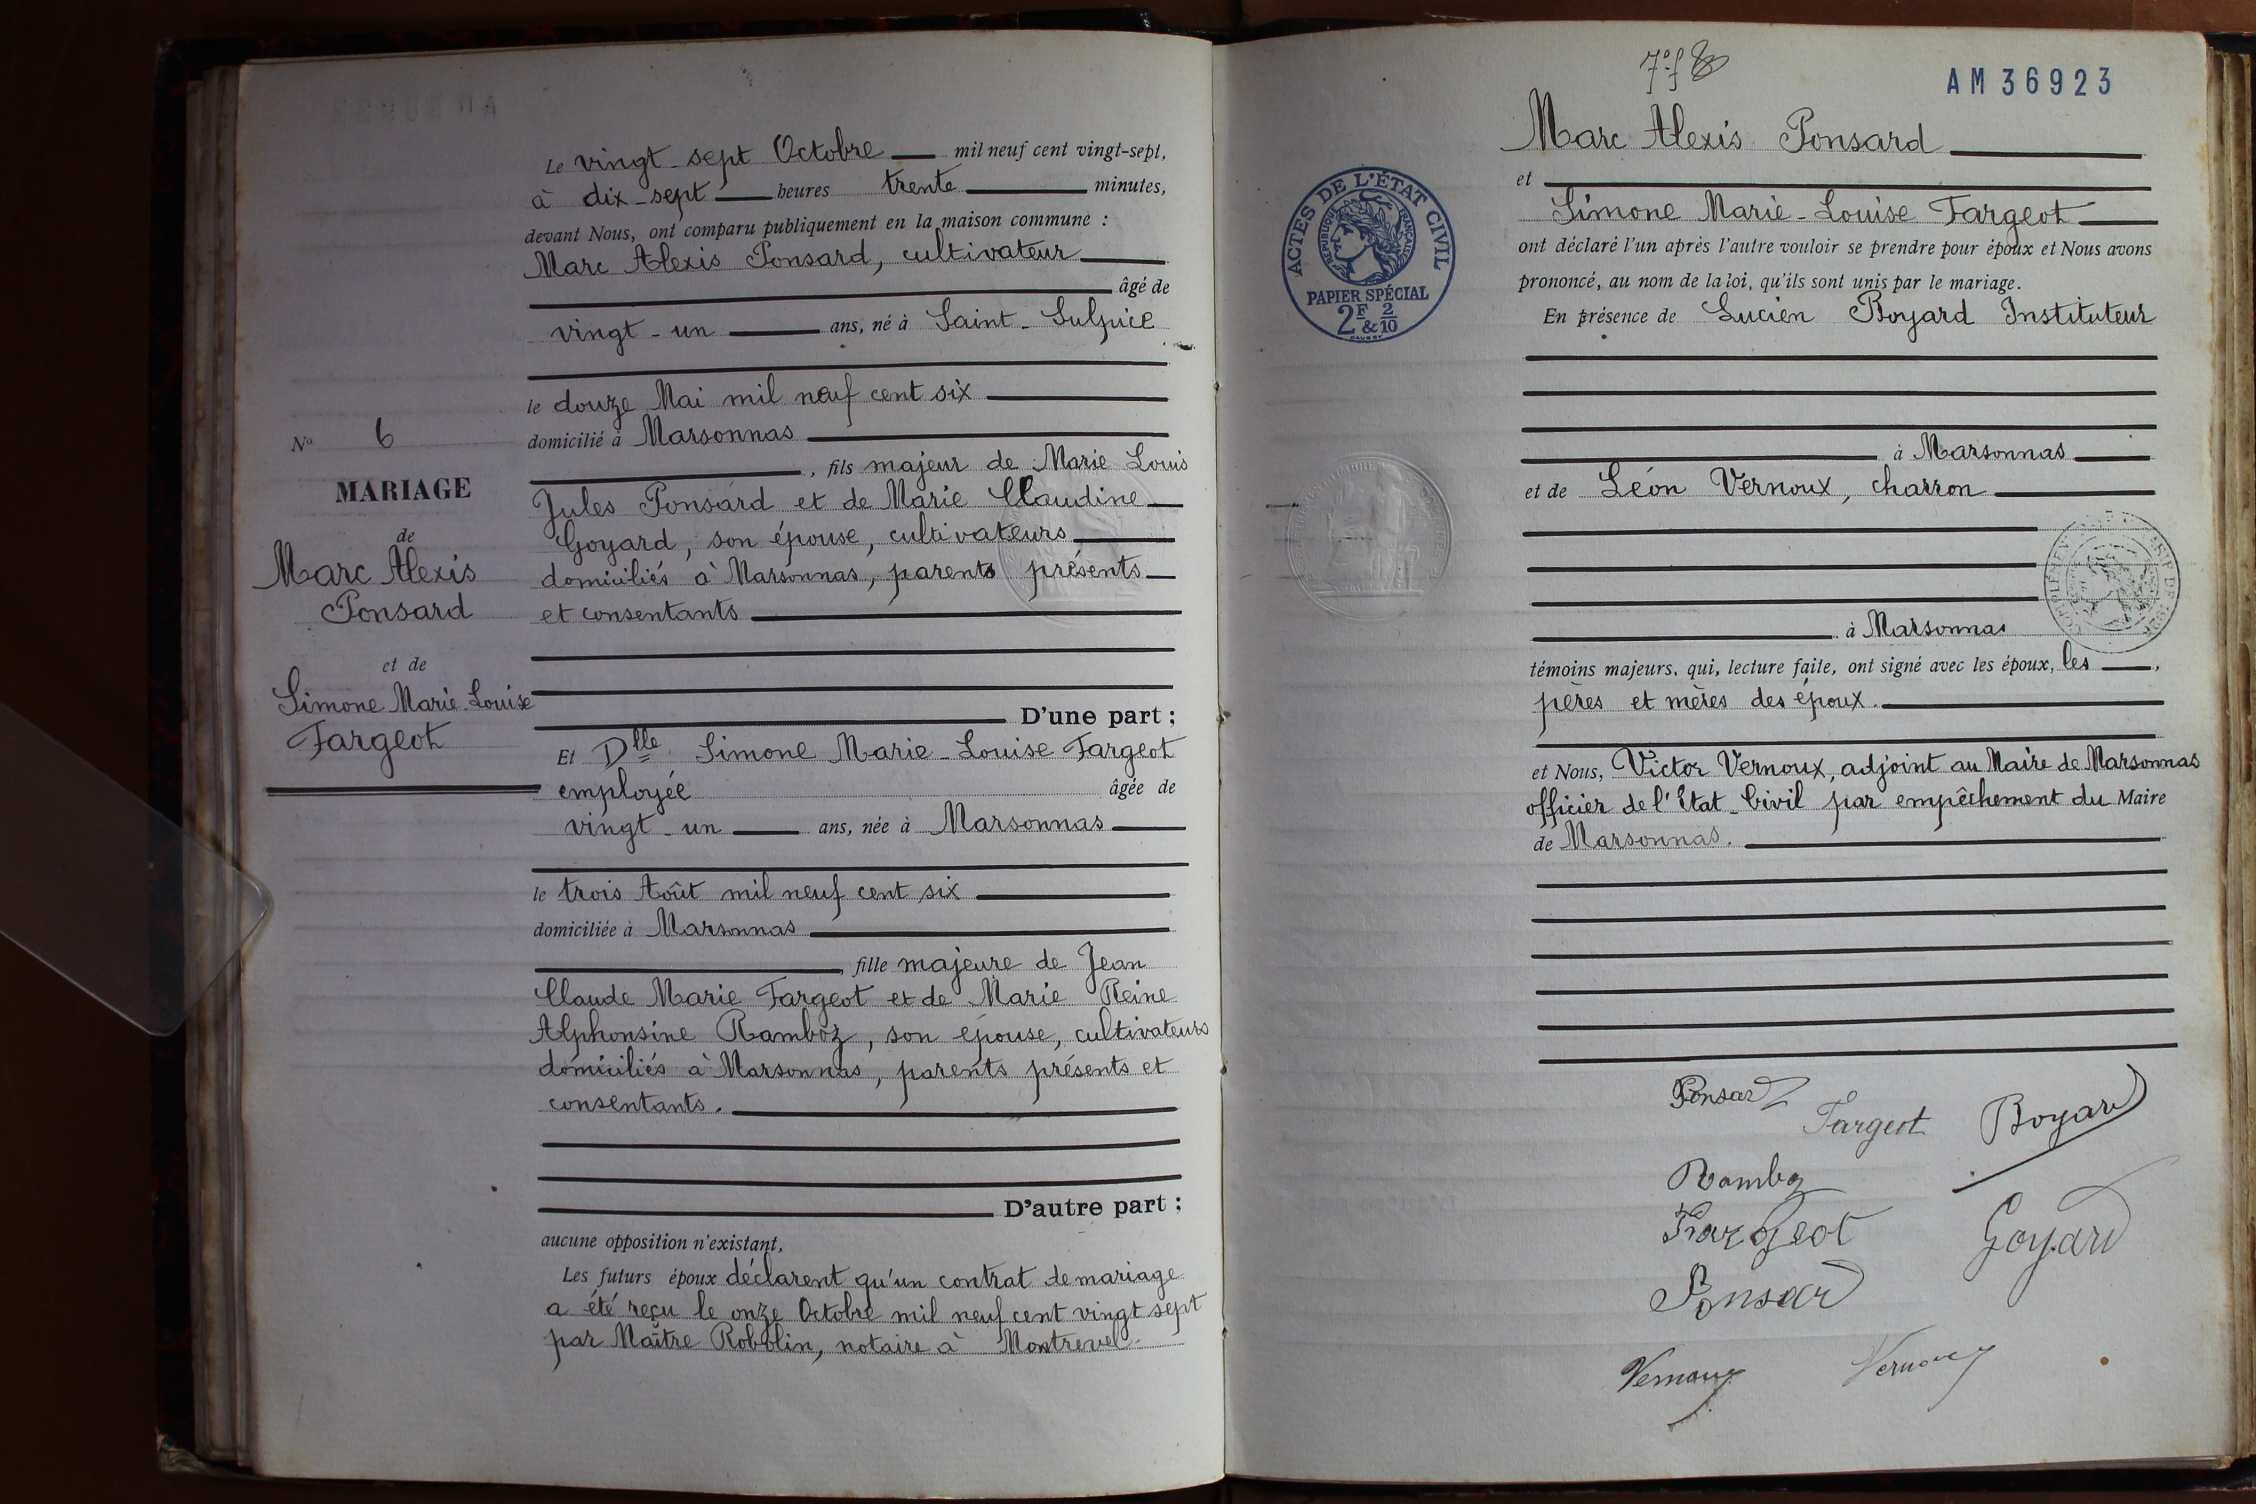 Le vingt-sept Octobre mil neuf cent vingt-sept,
à dix-sept heures trente minutes,
devant Nous, ont comparu publiquement en la maison commune :
Marc Alexis Ponsard, cultivateur
âgé de
vingt-un ans, né à Saint-Sulpice
le douze Mai mil neuf cent six
domicilié à Marsonnas
, fils majeur de Marie Louis
Jules Ponsard et de Marie Claudine
Goyard, son épouse, cultivateurs
domiciliés à Marsonnas, parents présents
et consentants
D'une part ;
Et Dlle Simone Marie-Louise Fargeot
employée âgée de
vingt-un ans, née à Marsonnas
le trois Août mil neuf cent six
domiciliée à Marsonnas
, fille majeure de Jean
Claude Marie Fargeot et de Marie Reine
Alphonsine Ramboz, son épouse, cultivateurs
domiciliés à Marsonnas, parents présents et
consentants.
D'autre part ;
aucune opposition n'existant,
Les futurs époux déclarent qu'un contrat de mariage
a été reçu le onze Octobre mil neuf cent vingt sept
par Maître Robolin, notaire à Montrevel
No 6
MARIAGE
de
Marc Alexis
Ponsard
et de
Simone Marie-Louise
Fargeot
AM 36923
Marc Alexis Ponsard
et
Simone Marie-Louise Fargeot
ont déclaré l'un après l'autre vouloir se prendre pour époux et Nous avons
prononcé, au nom de la loi, qu'ils sont unis par le mariage.
En présence de Lucien Boyard Instituteur
à Marsonnas
et de Léon Vernoux, charron
à Marsonnas
témoins majeurs, qui, lecture faite, ont signé avec les époux, les ,
pères et mères des époux.
et Nous, Victor Vernoux, adjoint au Maire de Marsonnas
officier de l'Etat-Civil par empêchement du Maire
de Marsonnas.
Ponsard
Fargeot
Boyard
Ramboz
Fargeot
Goyard
Ponsard
Vernoux
Vernoux
ACTES DE L'ÉTAT CIVIL
RÉPUBLIQUE FRANÇAISE
PAPIER SPÉCIAL
2F & 2/10